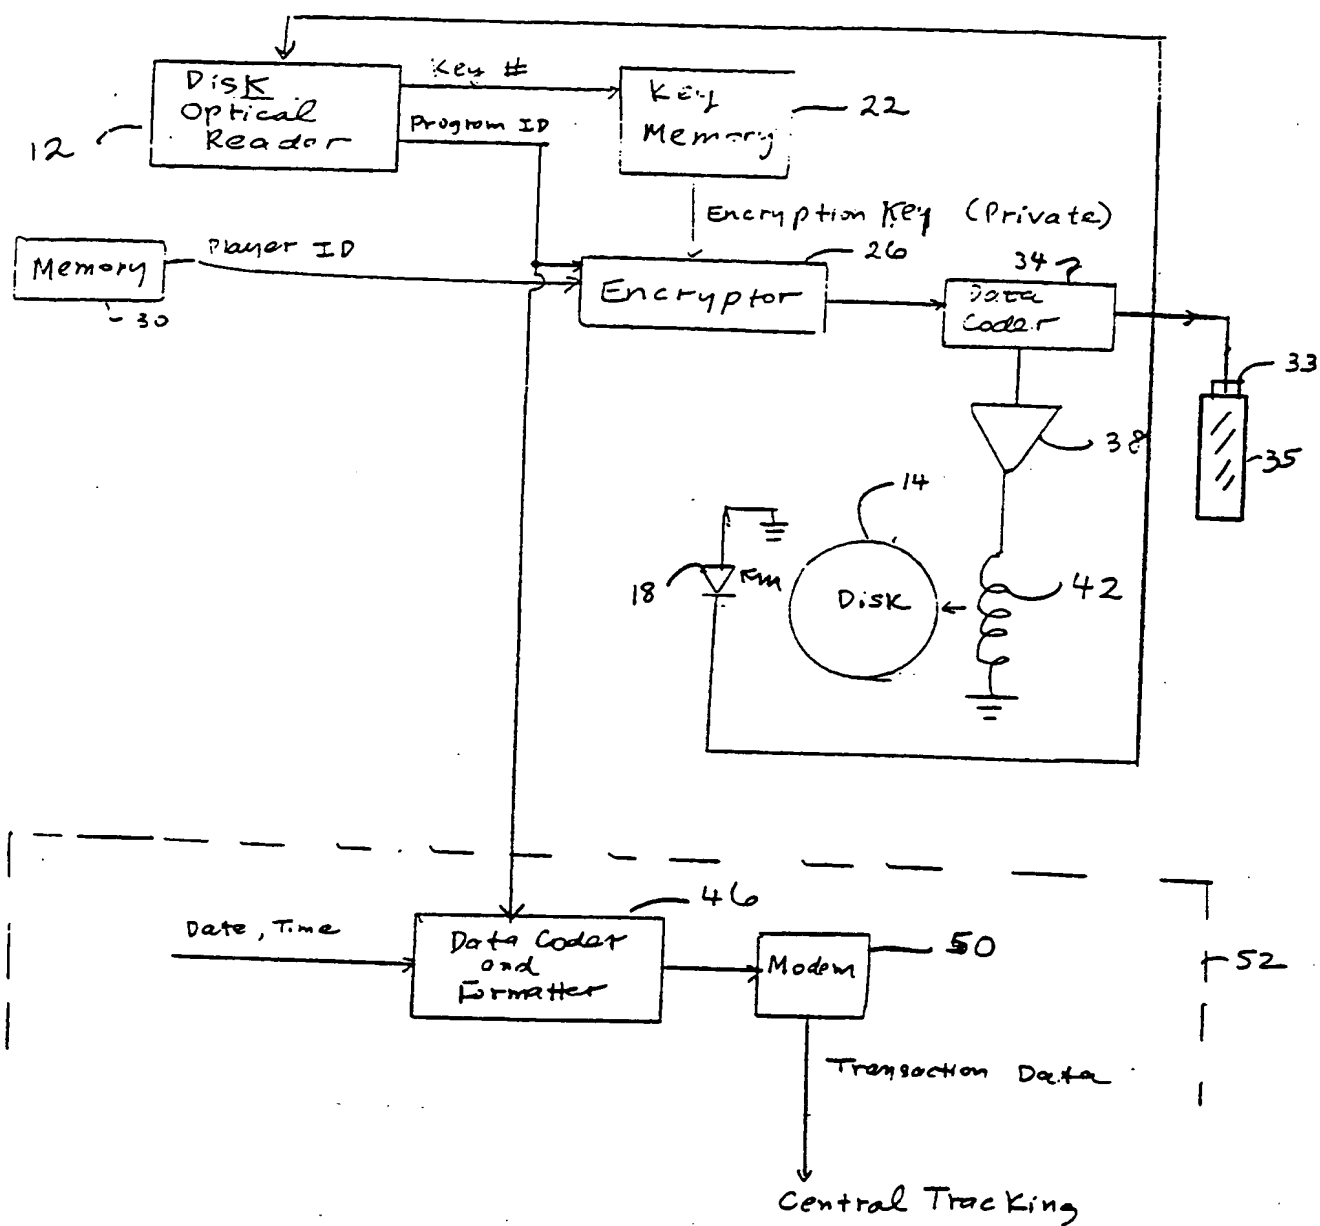 Key #
Disk
Optical
Reader
12
Program ID
Key
Memory
22
Encryption Key (Private)
Player ID
Memory
30
26
Encryptor
34
Data
Coder
33
35
38
14
18
Disk
42
46
Date, Time
Data Coder
and
Formatter
Modem
50
52
Transaction Data
Central Tracking